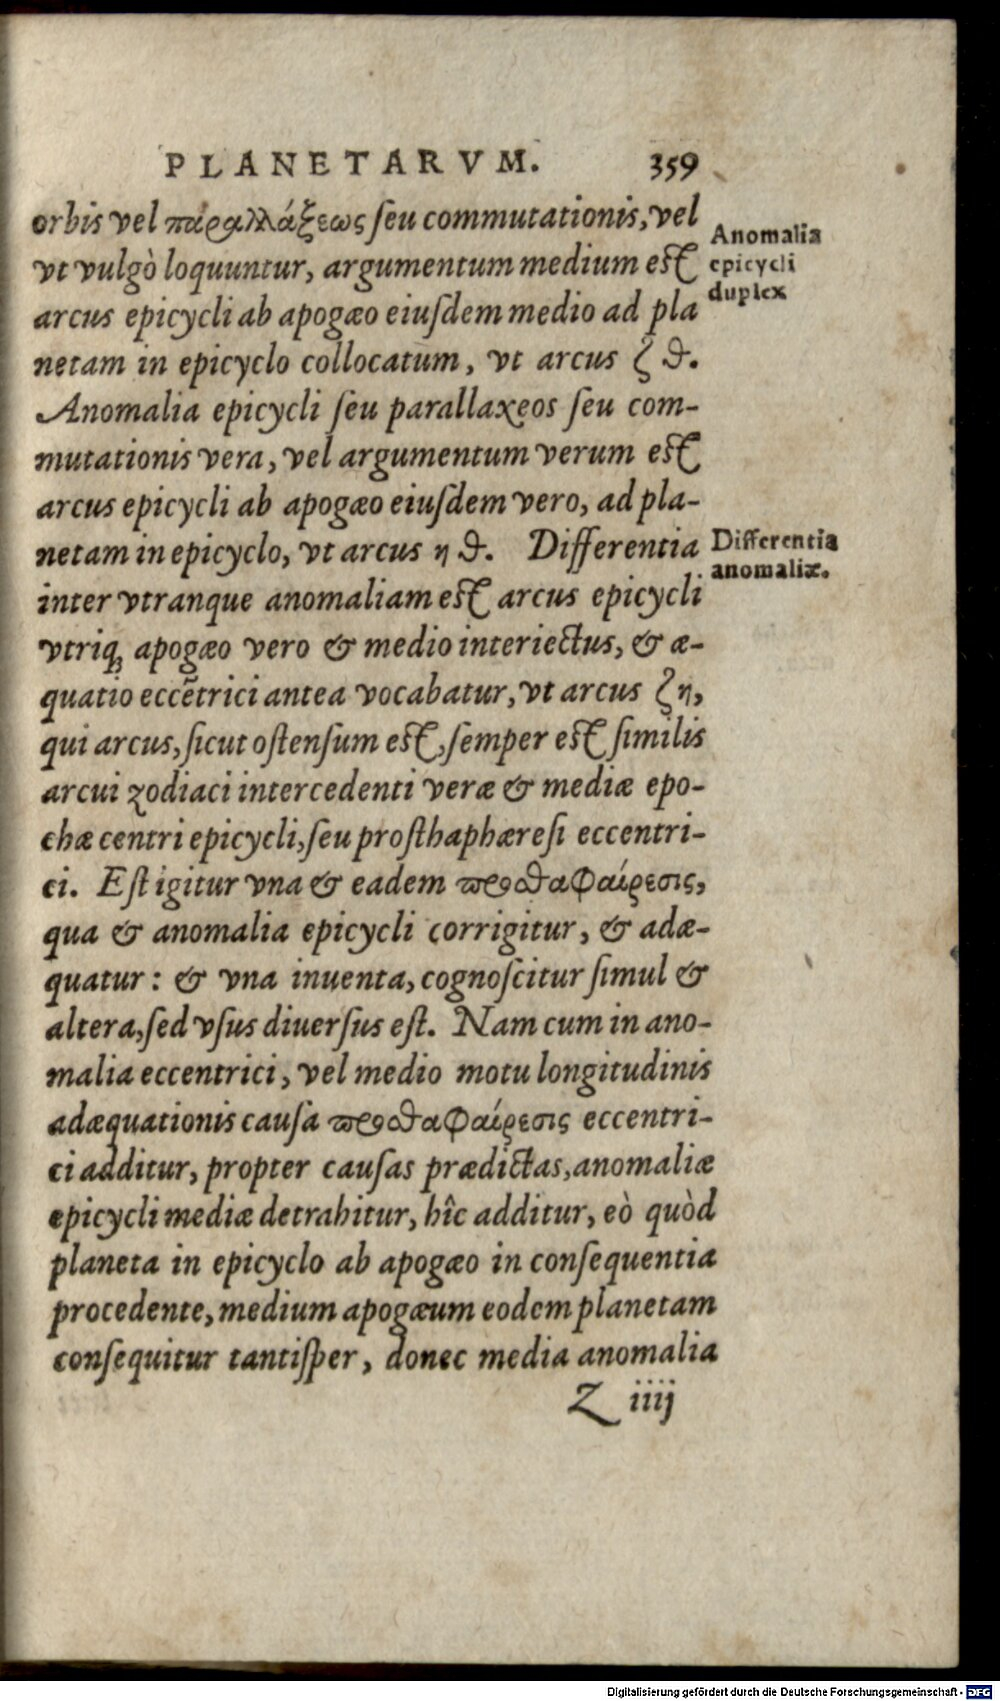 PLANETARVM. 359
orbis vel παραλλάξεως ſeu commutationis, vel
vt vulgò loquuntur, argumentum medium eſt
arcus epicycli ab apogæo eiuſdem medio ad pla
netam in epicyclo collocatum, vt arcus ζ ϑ.
Anomalia epicycli ſeu parallaxeos ſeu com-
mutationis vera, vel argumentum verum eſt
arcus epicycli ab apogæo eiuſdem vero, ad pla-
netam in epicyclo, vt arcus η ϑ. Differentia
inter vtranque anomaliam eſt arcus epicycli
vtriq; apogæo vero & medio interiectus, & æ-
quatio eccẽtrici antea vocabatur, vt arcus ζη,
qui arcus, ſicut oſtenſum eſt, ſemper eſt ſimilis
arcui zodiaci intercedenti veræ & mediæ epo-
chæ centri epicycli, ſeu proſthaphæreſi eccentri-
ci. Eſt igitur vna & eadem προσθαφαίρεσις,
qua & anomalia epicycli corrigitur, & adæ-
quatur: & vna inuenta, cognoſcitur ſimul &
altera, ſed vſus diuerſus eſt. Nam cum in ano-
malia eccentrici, vel medio motu longitudinis
adæquationis cauſa προσθαφαίρεσις eccentri-
ci additur, propter cauſas prædictas, anomaliæ
epicycli mediæ detrahitur, hîc additur, eò quòd
planeta in epicyclo ab apogæo in conſequentia
procedente, medium apogæum eodem planetam
conſequitur tantiſper, donec media anomalia
Z iiij
Anomalia
epicycli
duplex
Differentia
anomaliæ.
Digitalisierung gefördert durch die Deutsche Forschungsgemeinschaft - DFG